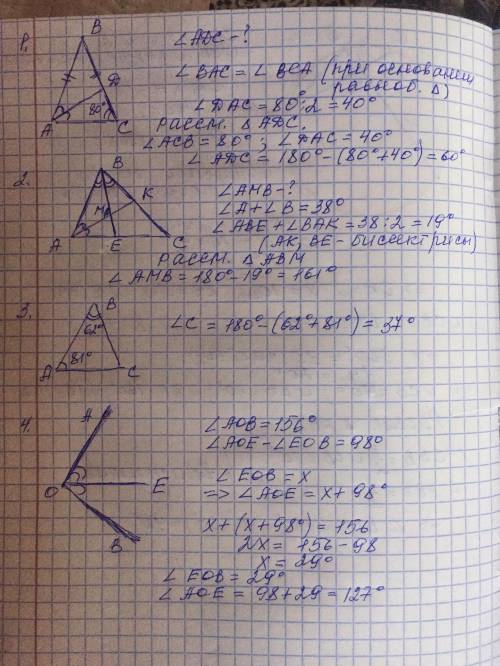 1.
B
D
80°
A
C
∠ADC-?
∠BAC = ∠BCA (при основании
равноб. Δ)
∠DAC = 80°:2 = 40°
рассм. Δ ADC.
∠ACB = 80° ; ∠DAC = 40°
∠ADC = 180°-(80°+40°) = 60°
2.
B
K
M
A
E
C
∠AMB-?
∠A+∠B = 38°
∠ABE+∠BAK = 38:2 = 19°
(AK, BE - биссектрисы)
рассм. Δ ABM
∠AMB = 180°-19° = 161°
3.
B
62°
81°
A
C
∠C = 180°-(62°+81°) = 37°
4.
A
O
E
B
∠AOB = 156°
∠AOE-∠EOB = 98°
∠EOB = x
=> ∠AOE = x+98°
x+(x+98°) = 156
2x = 156-98
x = 29°
∠EOB = 29°
∠AOE = 98+29 = 127°